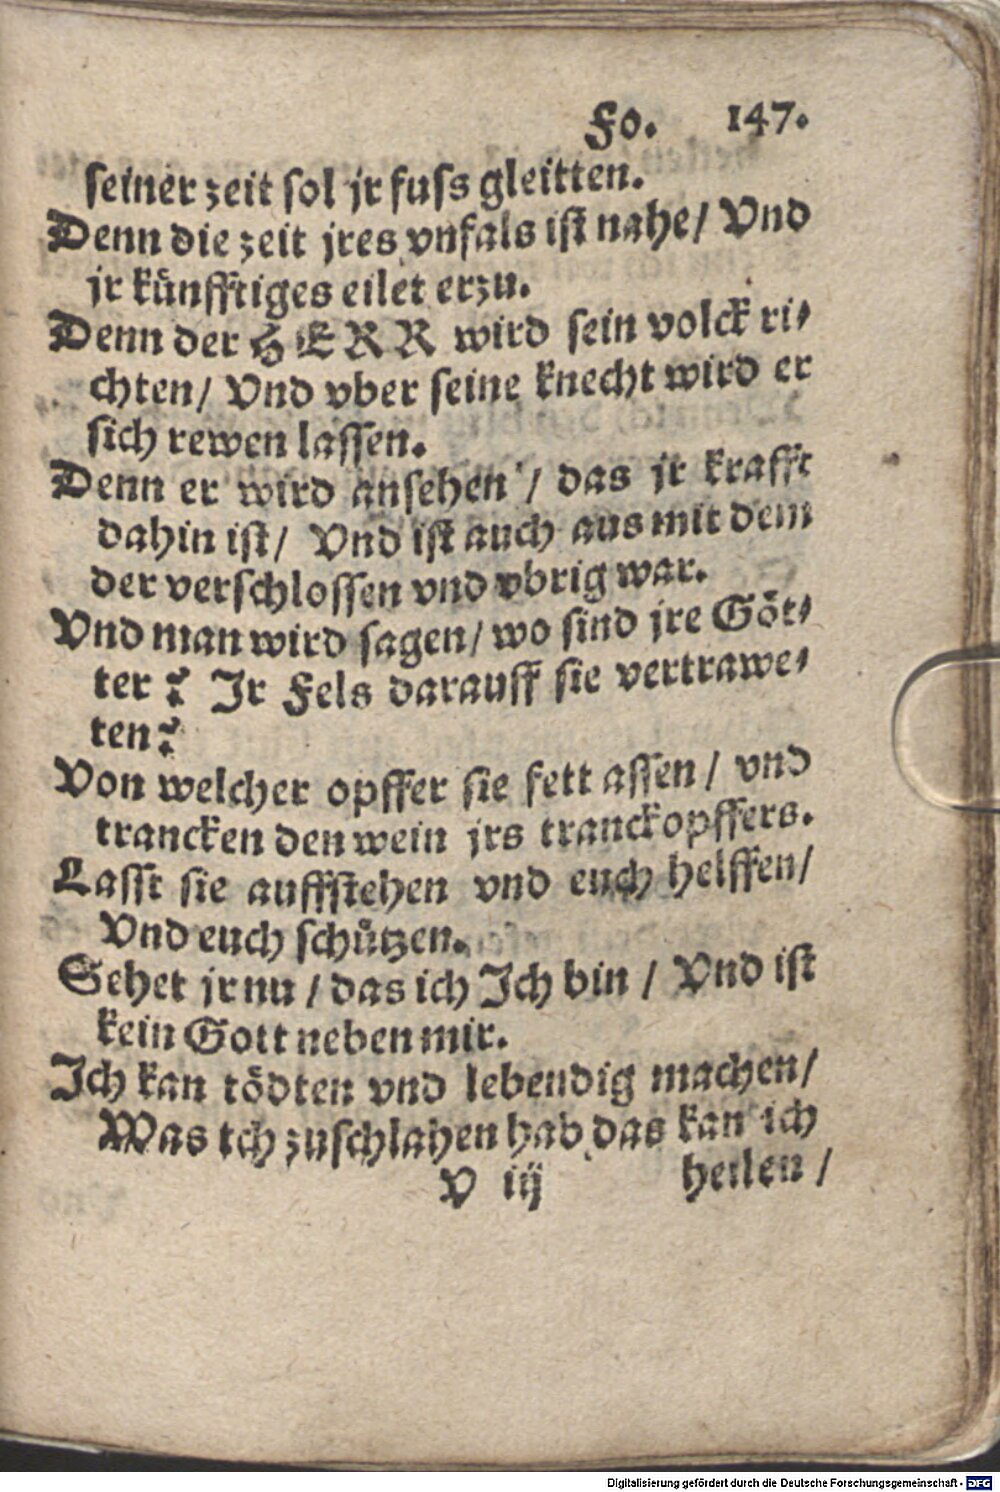 Fo. 147.
seiner zeit sol jr fuss gleitten.
Denn die zeit jres vnfals ist nahe/ Vnd
jr künfftiges eilet erzu.
Denn der HERR wird sein volck ri⸗
chten/ Vnd vber seine knecht wird er
sich rewen lassen.
Denn er wird ansehen / das jr krafft
dahin ist/ Vnd ist auch aus mit dem
der verschlossen vnd vbrig war.
Vnd man wird sagen/ wo sind jre Göt⸗
ter? Jr Fels darauff sie vertrawe⸗
ten?
Von welcher opffer sie fett assen / vnd
trancken den wein jrs tranckopffers.
Lasst sie auffstehen vnd euch helffen/
Vnd euch schützen.
Sehet jr nu / das ich Ich bin / Vnd ist
kein Gott neben mir.
Ich kan tödten vnd lebendig machen/
Was tch zuschlahen hab das kan ich
V iij heilen /
Digitalisierung gefördert durch die Deutsche Forschungsgemeinschaft - DFG